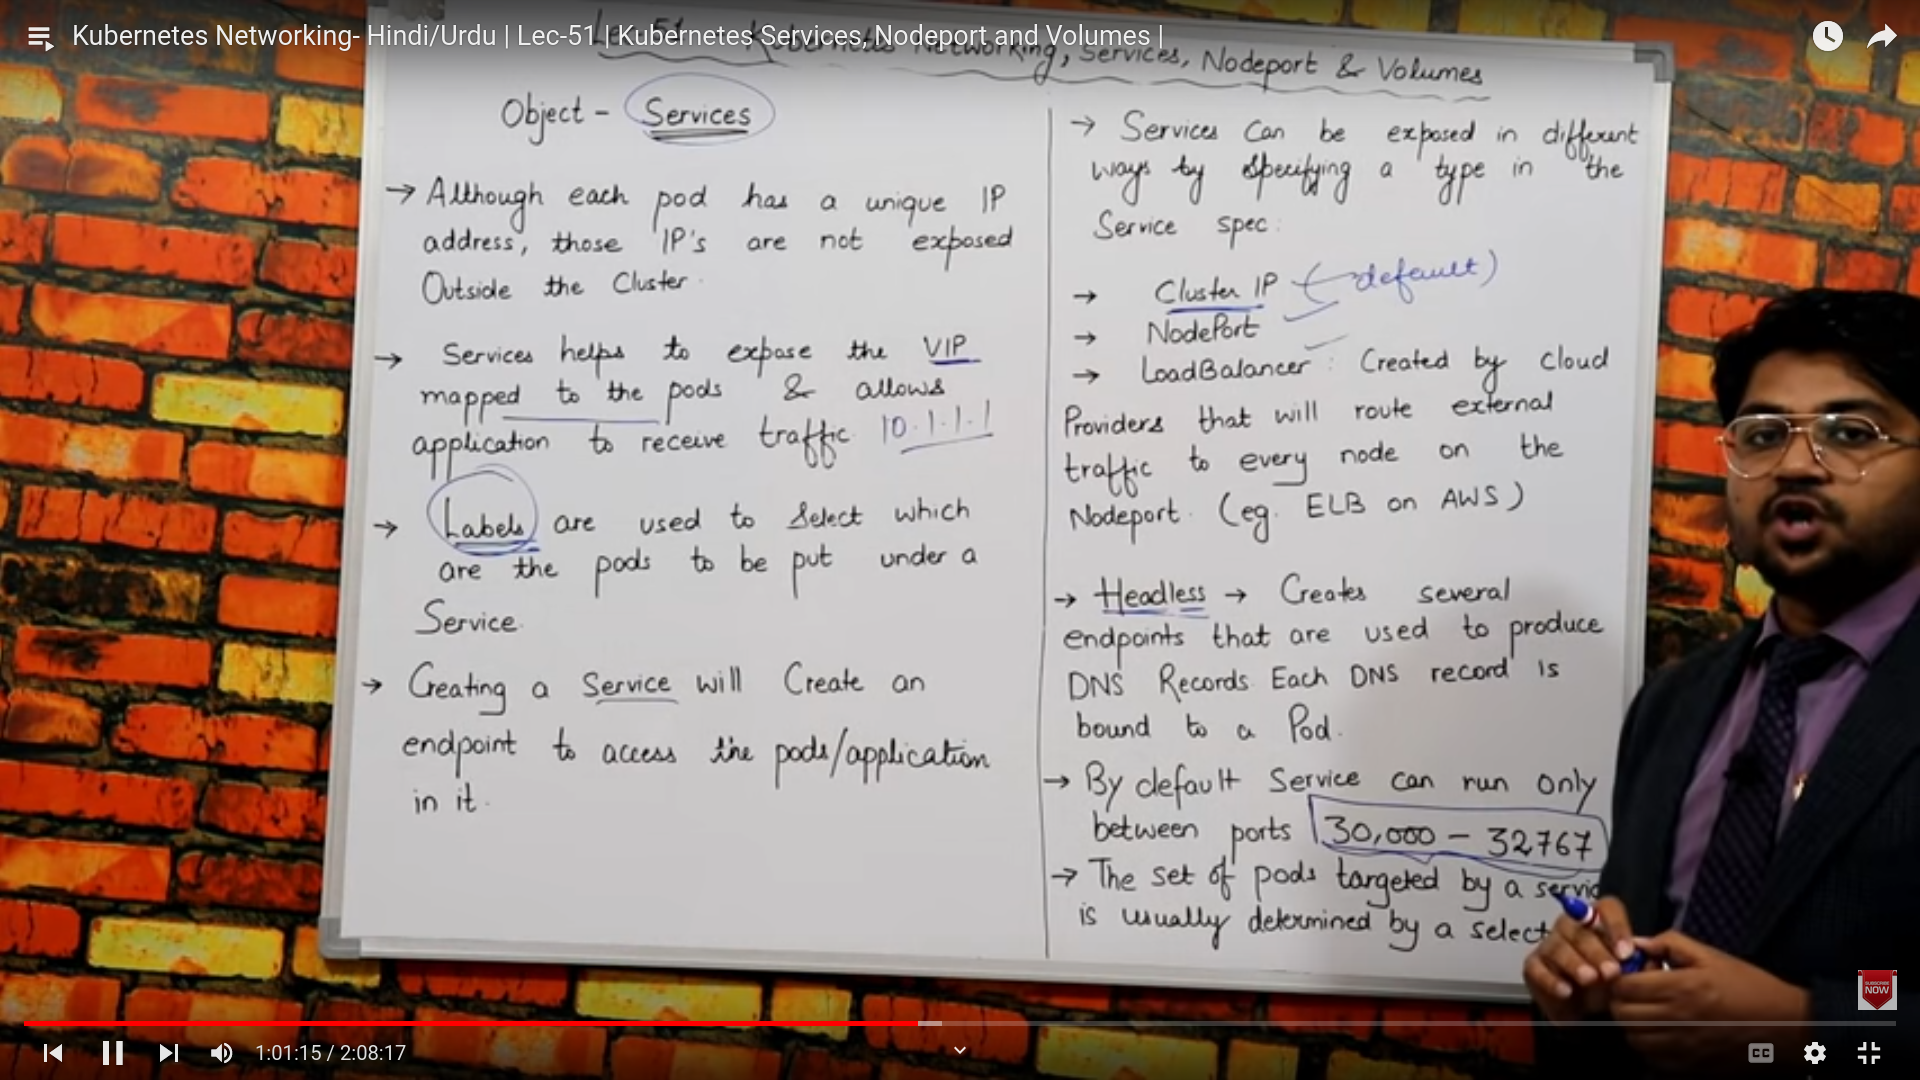 Kubernetes Networking- Hindi/Urdu | Lec-51 | Kubernetes Services, Nodeport and Volumes |
Lec-51 Kubernetes Networking, Services, Nodeport & Volumes
Object - Services
→ Although each pod has a unique IP
address, those IP's are not exposed
Outside the Cluster.
→ Services helps to expose the VIP
mapped to the pods & allows
application to receive traffic 10.1.1.1
→ Labels are used to Select which
are the pods to be put under a
Service.
→ Creating a Service will Create an
endpoint to access the pods/application
in it.
→ Services Can be exposed in different
ways by Specifying a type in the
Service spec:
→ Cluster IP (default)
→ NodePort
→ LoadBalancer : Created by cloud
Providers that will route external
traffic to every node on the
Nodeport. (eg. ELB on AWS)
→ Headless → Creates several
endpoints that are used to produce
DNS Records. Each DNS record is
bound to a Pod.
→ By default Service can run only
between ports 30,000 - 32767
→ The set of pods targeted by a servic
is usually determined by a select
SUBSCRIBE
NOW
1:01:15 / 2:08:17
CC